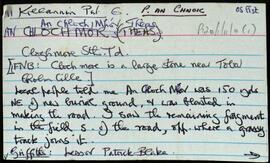 Killannin Par G. P. AN CHNOIC OS first
An Chloch Mhór Theas
AN CHLOCH MHÓR (THEAS)
Cloghmore Sth Td.
[FNB: Cloghmore is a large stone near Tobar
Local people told me An Chloch Mhór was 150 yds
NE of new burial ground, & was blasted in
making the road. I saw the remaining fragment
in the field S. of the road, opp. where a grassy
track joins it.
Griffith: Lessor Patrick Blake